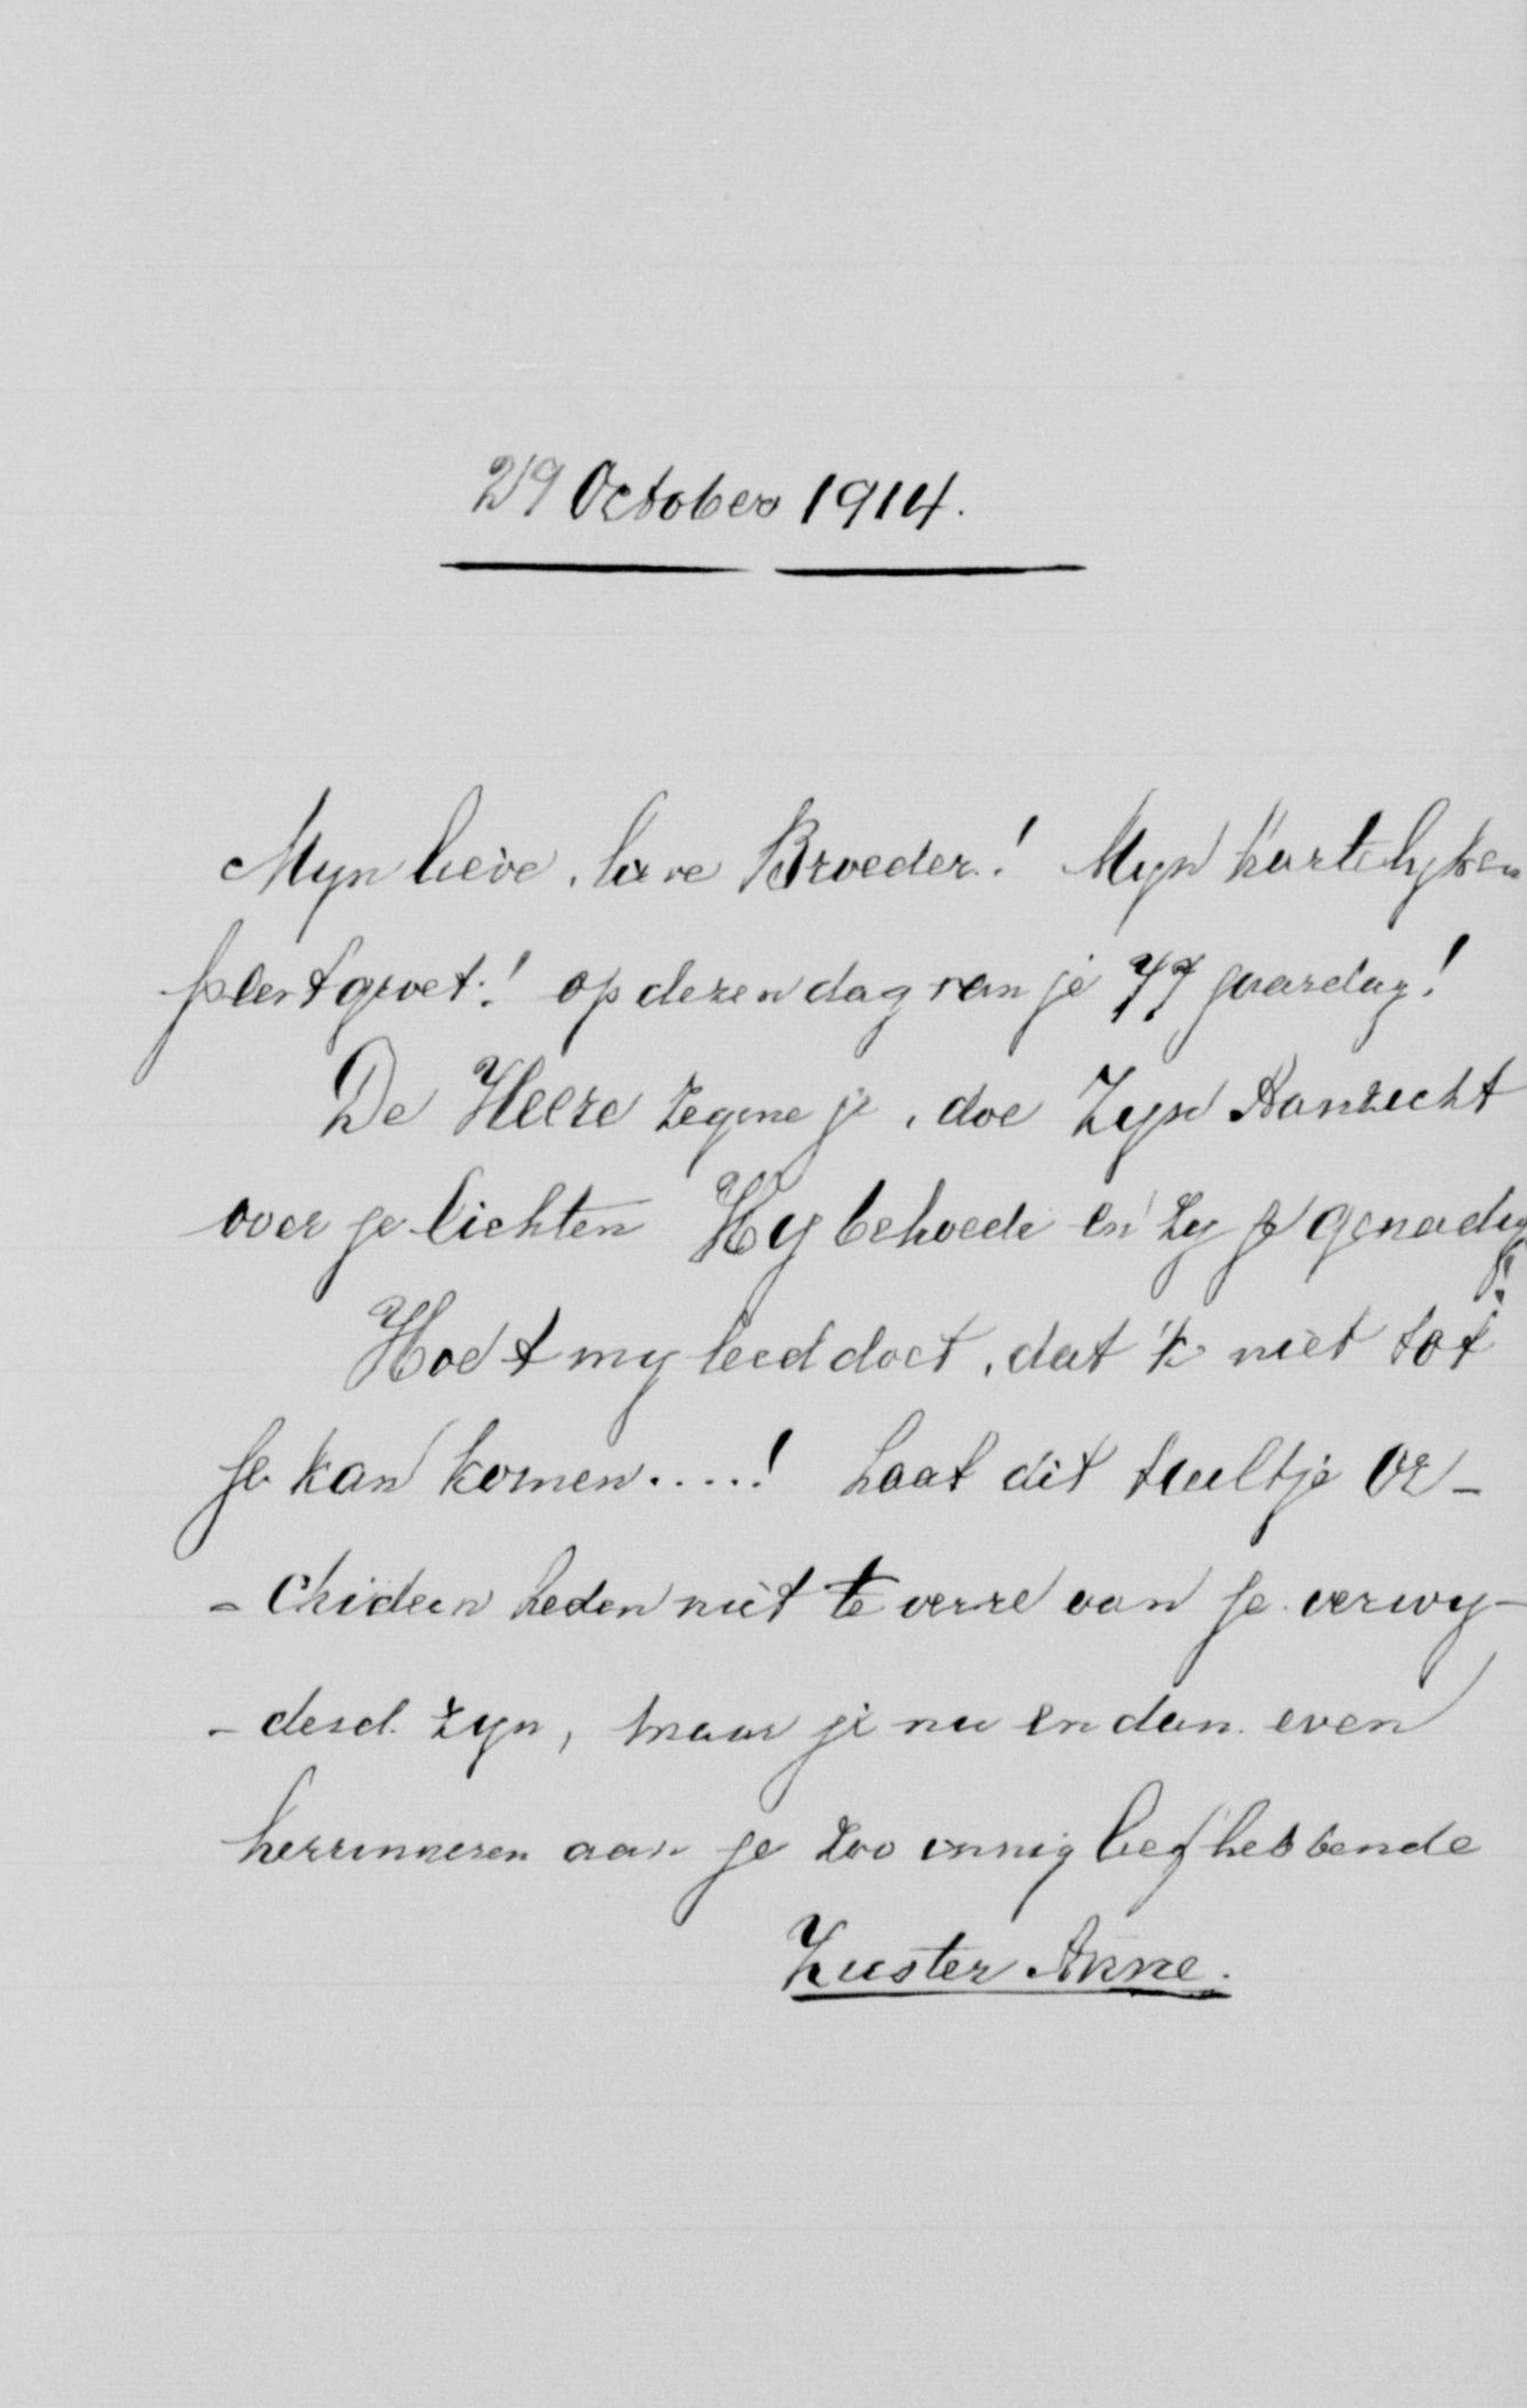 29 October 1914.
Myn lieve, lieve Broeder! Myn hartelyken
feestgroet! op dezen dag van je 77 jaardag!
De Heere zegene je, doe Zyn Aanzicht
over je lichten Hy behoede en zy je genadig!
Hoe 't my leed doet, dat 'k niet tot
je kan komen....! Laat dit tuiltje Or-
-chideen heden niet te verre van je verwy-
-derd zyn, maar je nu en dan even
herrinneren aan je zoo innig liefhebbende
Zuster Anne.